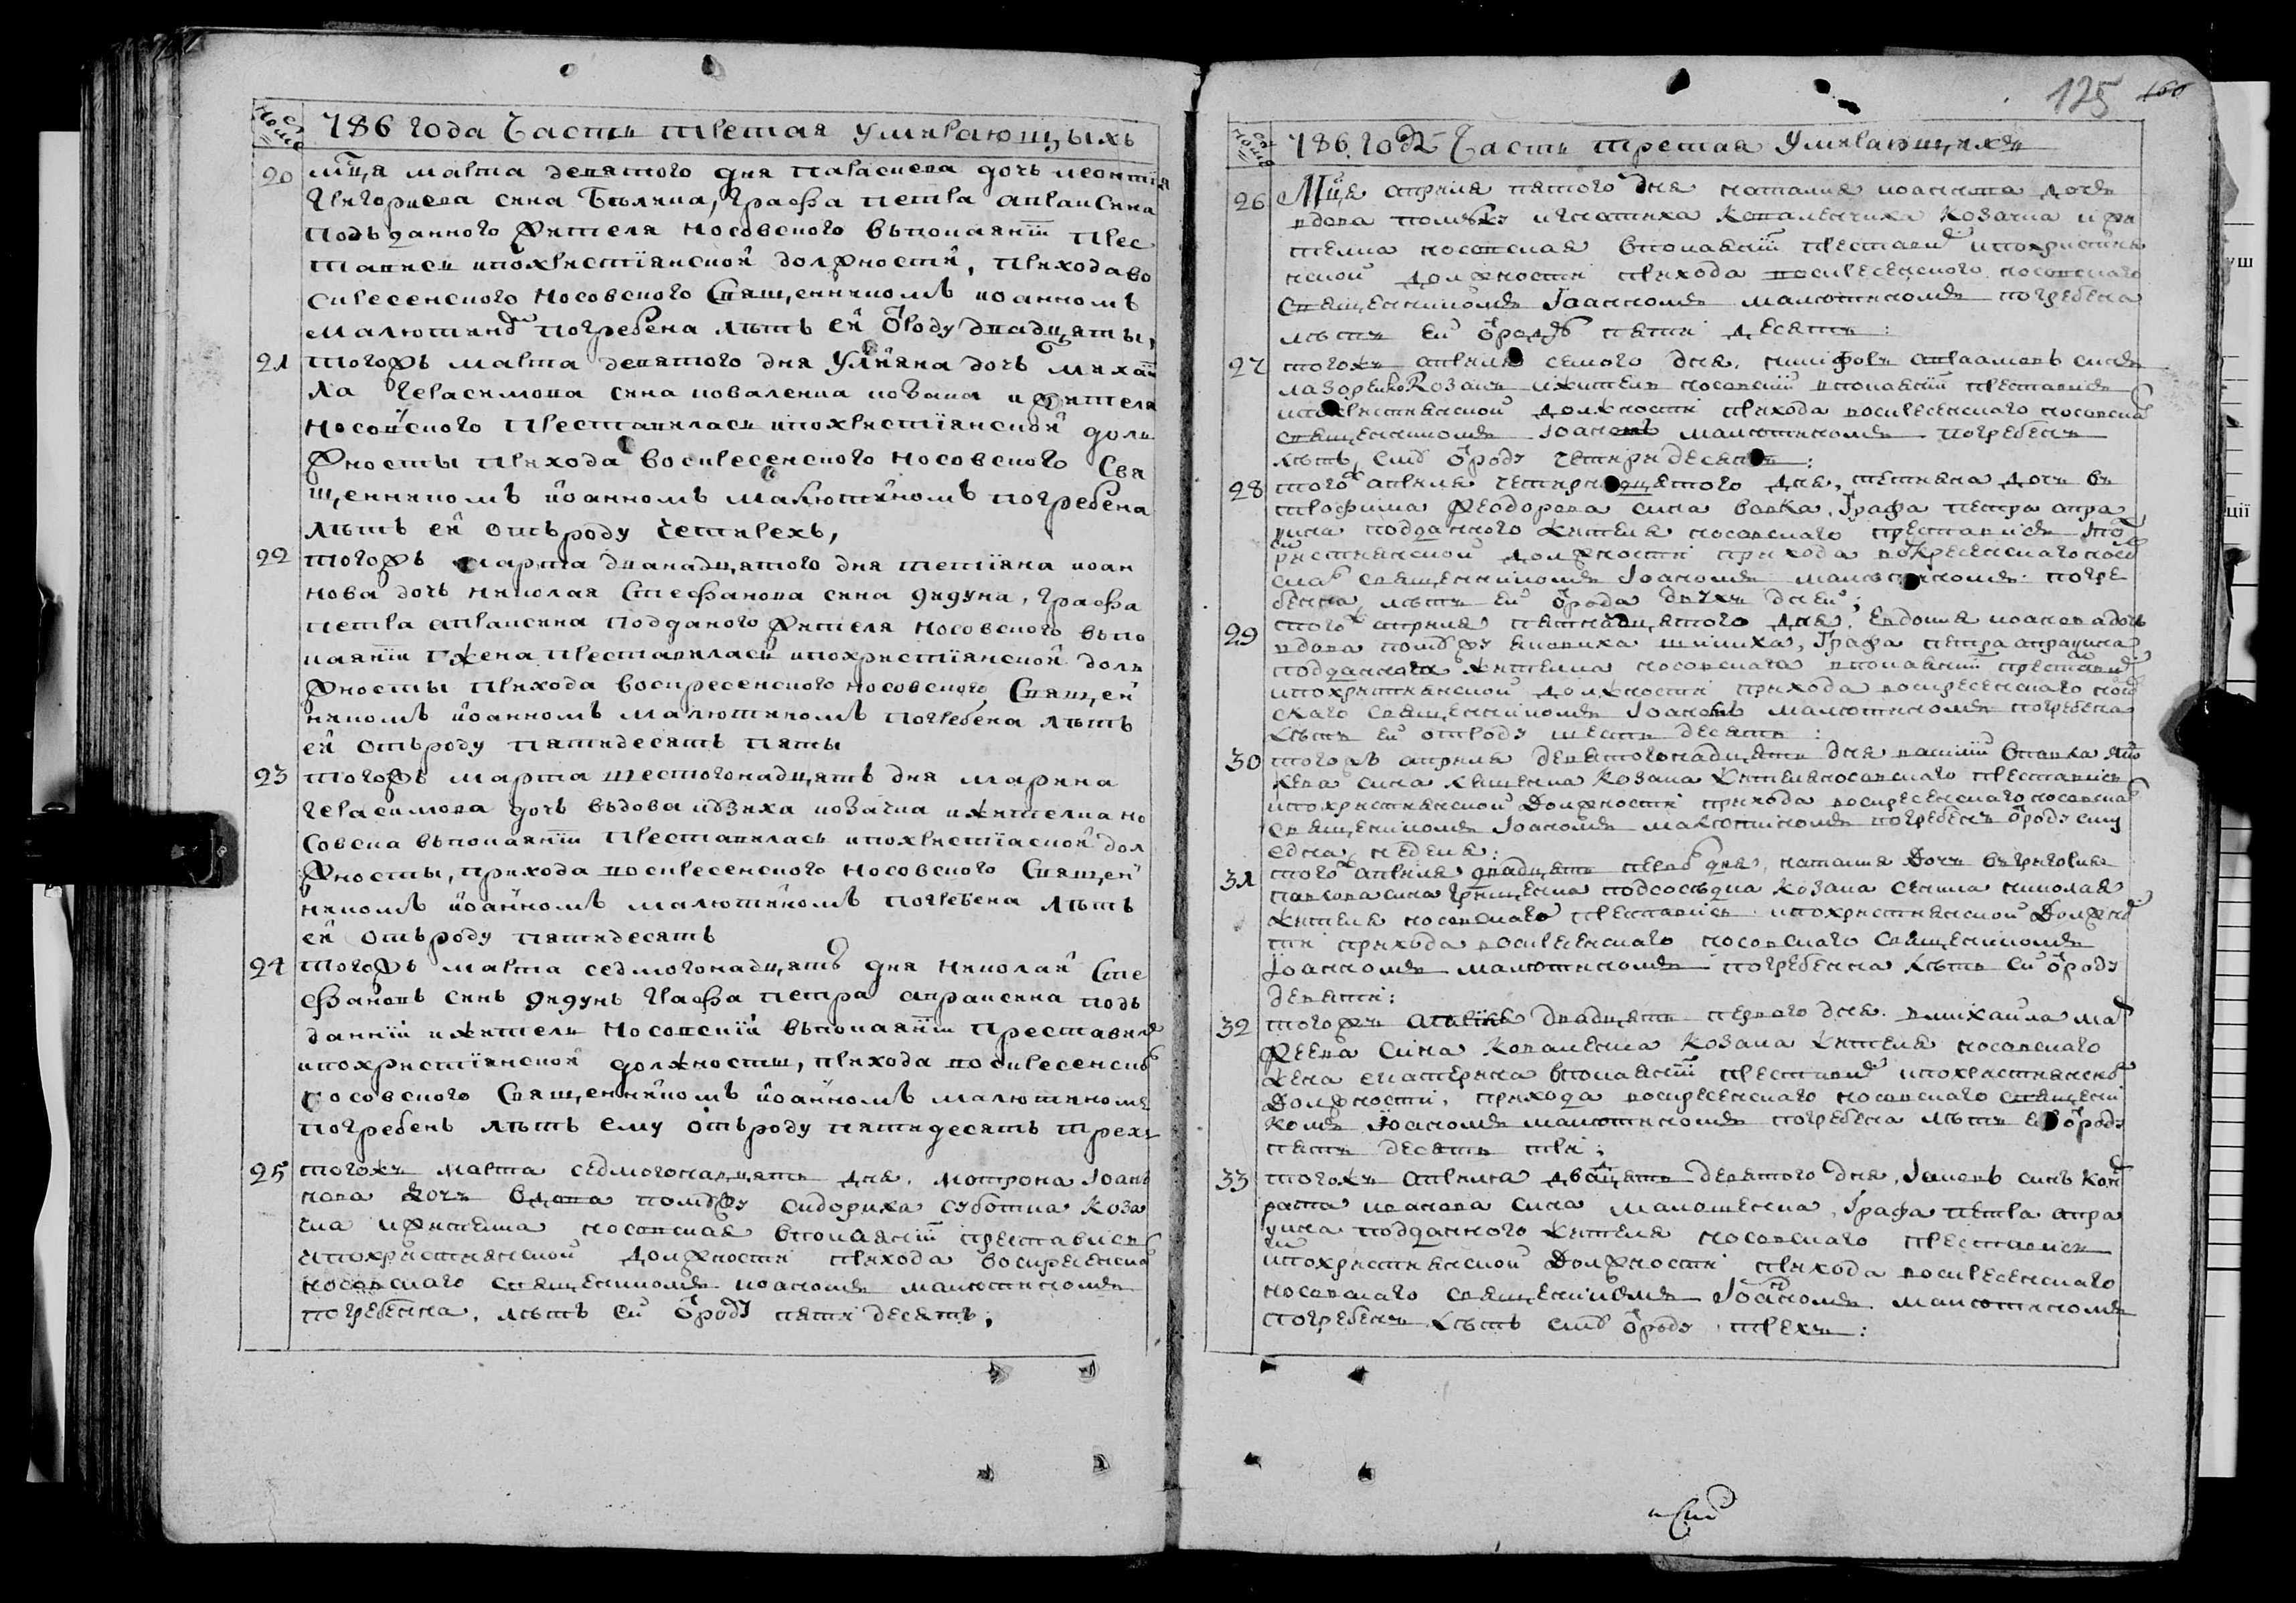 786 года Часть третая умирающыхъ
20 мца марта девятого дня параскева дочь леонтія
григориева сина Беляка, графа петра апраксина
подъданного жителя носовского въпокаяніи прес
тавись ипохристіянской должности, прихода во
скресенского Носовского Священникомъ иоанномъ
малютино погребена летъ ей ѿроду двадцяты,
21 тогожъ марта девятого дня Улияна дочь михаи
ла герасимова сина коваленка козака ижителя
носовского Преставилась ипохристіянской долъ
жносты прихода воскресенского носовского Свя
щенникомъ иоанномъ малютиномъ погребена
летъ ей отъроду четирехъ,
22 тогожъ марта дванадцятого дня тетіяна иоан
нова дочь николая Стефанова сина дидуна, графа
петра апраксина подданого жителя носовского въпо
каяніи жена преставилась ипохристіянской долъ
жносты прихода воскресенского носовского Священ
никомъ иоанномъ малютиномъ погребена летъ
ей отъроду пятидесятъ пяты
23 тогожъ марта шестогонадцять дня марина
герасимова дочь въдова козачка ижителка но
совска въпокаяніи преставилась ипохристіаской дол
жносты, прихода воскресенского носовского Священ
никомъ иоанномъ малютиномъ погребена летъ
ей отъроду пятидесятъ
24 тогожъ марта седмогонадцять дня николай Сте
фановъ синъ дидунъ графа петра апраксина подъ
данній ижитель Носовскій въпокаяніи преставил
ипохристіянской должносты, прихода воскресенско
носовского Священникомъ иоанномъ малютиномъ
погребенъ летъ ему отъроду пятидесятъ трехъ
25 тогожъ марта седмогонадцять дня, мотрона Іоан
нова дочъ вдова помужу сидориха суботка коза
чка ижителка носовская впокаяніи преставись
ипохристиянской должности прихода воскресенско
носовскаго священникомъ иоаномъ малютиномъ
погребенна, летъ ей ѿроду пяти десятъ,
125 160
786 год Часть третая Умирающихъ
26 Мця априля пятого дня наталия иоаннова дочъ
вдова помужу игнатиха коваленчиха козачка и жи
телка носовская впокаяніи преставис ипохристия
нской должности прихода воскресенского носовскаго
священникомъ Іоанномъ малютиномъ погребена
летъ ей ѿроду пяти десятъ:
27 тогожъ априля семого дня, никифоръ авраамовъ синъ
лазоренко козакъ ижитель носовскій впокаяніи преставись
ипохристиянской должности прихода воскресенскаго носовска
священникомъ Іоаномъ малютиномъ погребенъ
летъ ему ѿроду четиридесятъ:
28 того априля четирнадцятого дня, тетияна дочъ въ
трофима феодорова сина вовка, графа петра апра
ксина подданного жителя носовскаго преставись ипо
християнской должности прихода воскресенскаго носо
скаг священникомъ Іоаномъ малютиномъ погре
бенна, летъ ей ѿрода двухъ дней;
29 того априля пятнадцятого дня, Евдокия иоанова дочъ
вдова помужу графа петра апраксина
подданная жителка носовская впокаяніи престави
ипохритиянской должности прихода воскресенскаго носо
скаго священникомъ Іоаномъ малютиномъ погребена
летъ ей отроду шесть десятъ:
30 тогожъ априля девятогонадцять дня василій впавла яко
влева сина козака жителяносовскаго преставись
ипохристиянской должности прихода воскресенскаго носовска
священикомъ Іоаномъ малютиномъ погребенъ ѿроду ему
една неделя:
31 того априля двадцять перво дня, наталия дочъ въгригория
павлова сина грищенка подсоседка козака сенка николая
жителя носовскаго преставись ипохристиянской должно
сти прихода воскресенскаго носовскаго священикомъ
Іоанномъ малютиномъ погребенна летъ ей ѿроду
девяти:
32 тогожъ априля двадцять первого дня, вмихайла ма
феева сина коваленка козака жителя носовскаго
жена екатерина впокаяніи престави ипохристиянско
должности, прихода воскресенскаго носовскаго священи
комъ Іоаномъ малютиномъ погребена летъ ей ѿроду
пять десятъ три;
33 тогожъ априля двацять девятого дня, Іаковъ синъ кон
рата иванова сина малошенка, графа петра апра
ксина подданного жителя носовскаго преставись
ипохристиянской должности прихода воскресенскаго
носовскаго священикомъ Іоаномъ малютиномъ
погребенъ летъ ему ѿроду трехъ: